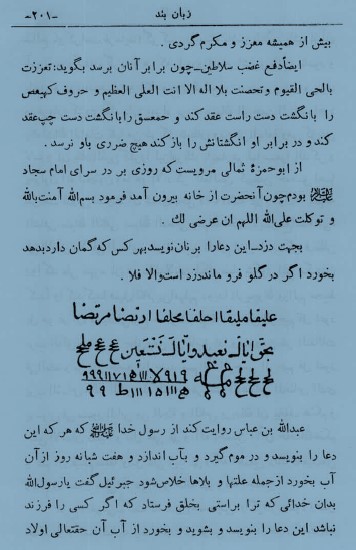 زبان بند -۲۰۱-
بیش از همیشه معزز و مکرم گردی .
ایضاً دفع غضب سلاطین ـ چون برابر آنان برسد بگوید: تعززت
بالحی القیوم و تحصنت بلا اله الا انت العلی العظیم و حروف کهیعص
را با نگشت دست راست عقد کند و حمعسق را بانگشت دست چپ عقد
کند و در برابر او انگشتانش را باز کند هیچ ضرری باو نرسد .
از ابو حمزهٔ ثمالی مرویست که روزی بر در سرای امام سجاد
علیه‌السلام بودم چون آنحضرت از خانه بیرون آمد فرمود بسم‌الله آمنت بالله
و توکلت علی الله اللهم ان عرضی لك .
بجهت دزد ـ این دعا را بر نان نویسد بهر کس که گمان دارد بدهد
بخورد اگر در گلو فرو ماند دزد است والا فلا .
علیقا ملیقا احلفا محلفا ارتضا مرتضا
بحق ایاك نعبد و ایاك نستعین
عبدالله بن عباس روایت کند از رسول خدا که هر که این
دعا را بنویسد و در موم گیرد و بآب اندازد و هفت شبانه روز از آن
آب بخورد از جمله علتها و بلاها خلاص شود جبرئیل گفت یا رسول‌الله
بدان خدائی که ترا براستی بخلق فرستاد که اگر کسی را فرزند
نباشد این دعا را بنویسد و بشوید و بخورد از آب آن حقتعالی اولاد